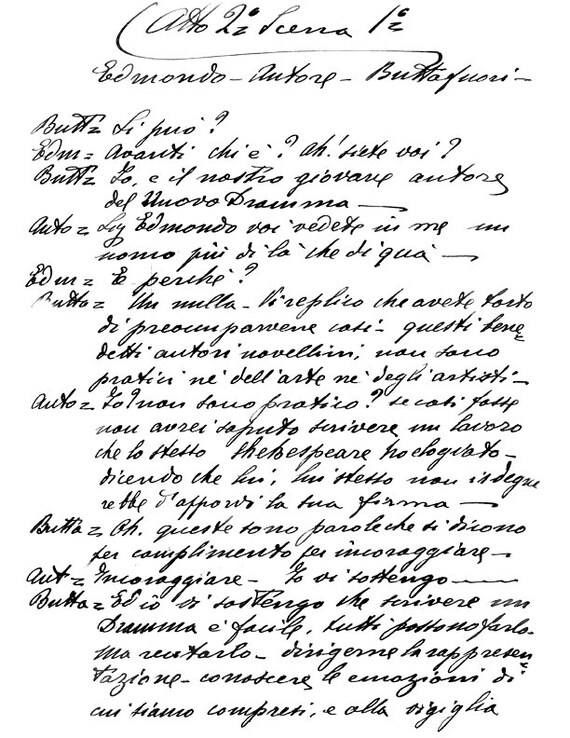 Atto 2º Scena 1ª
Edmondo - Autore - Buttafuori -
Butt= Si può?
Edm= Avanti chi è? Ah! siete voi?
Butt= Io, e il nostro giovane autore
del Nuovo Dramma —
Auto= Sig Edmondo voi vedete in me un
uomo più di là che di quà —
Edm= E perché?
Butta= Un nulla - Vi replico che avete torto
di preocuparvene così - questi bene
detti autori novellini, non sono
pratici nè dell'arte nè degli artisti -
Auto= Io? non sono pratico? se così fosse
non avrei saputo scrivere un lavoro
che lo stesso Shekespeare ha elogiato -
dicendo che lui, lui stesso non isdegne
rebbe d'apporvi la sua firma —
Butta= Oh. queste sono parole che si dicono
per complimento per incoraggiare -
Aut= Incoraggiare - Io vi sostengo —
Butta= Ed io vi sostengo che scrivere un
Dramma e' facile, tutti possono farlo -
ma recitarlo - dirigerne la rappresen
tazione - conoscere le emozioni di
cui siamo compresi, e alla vigiglia